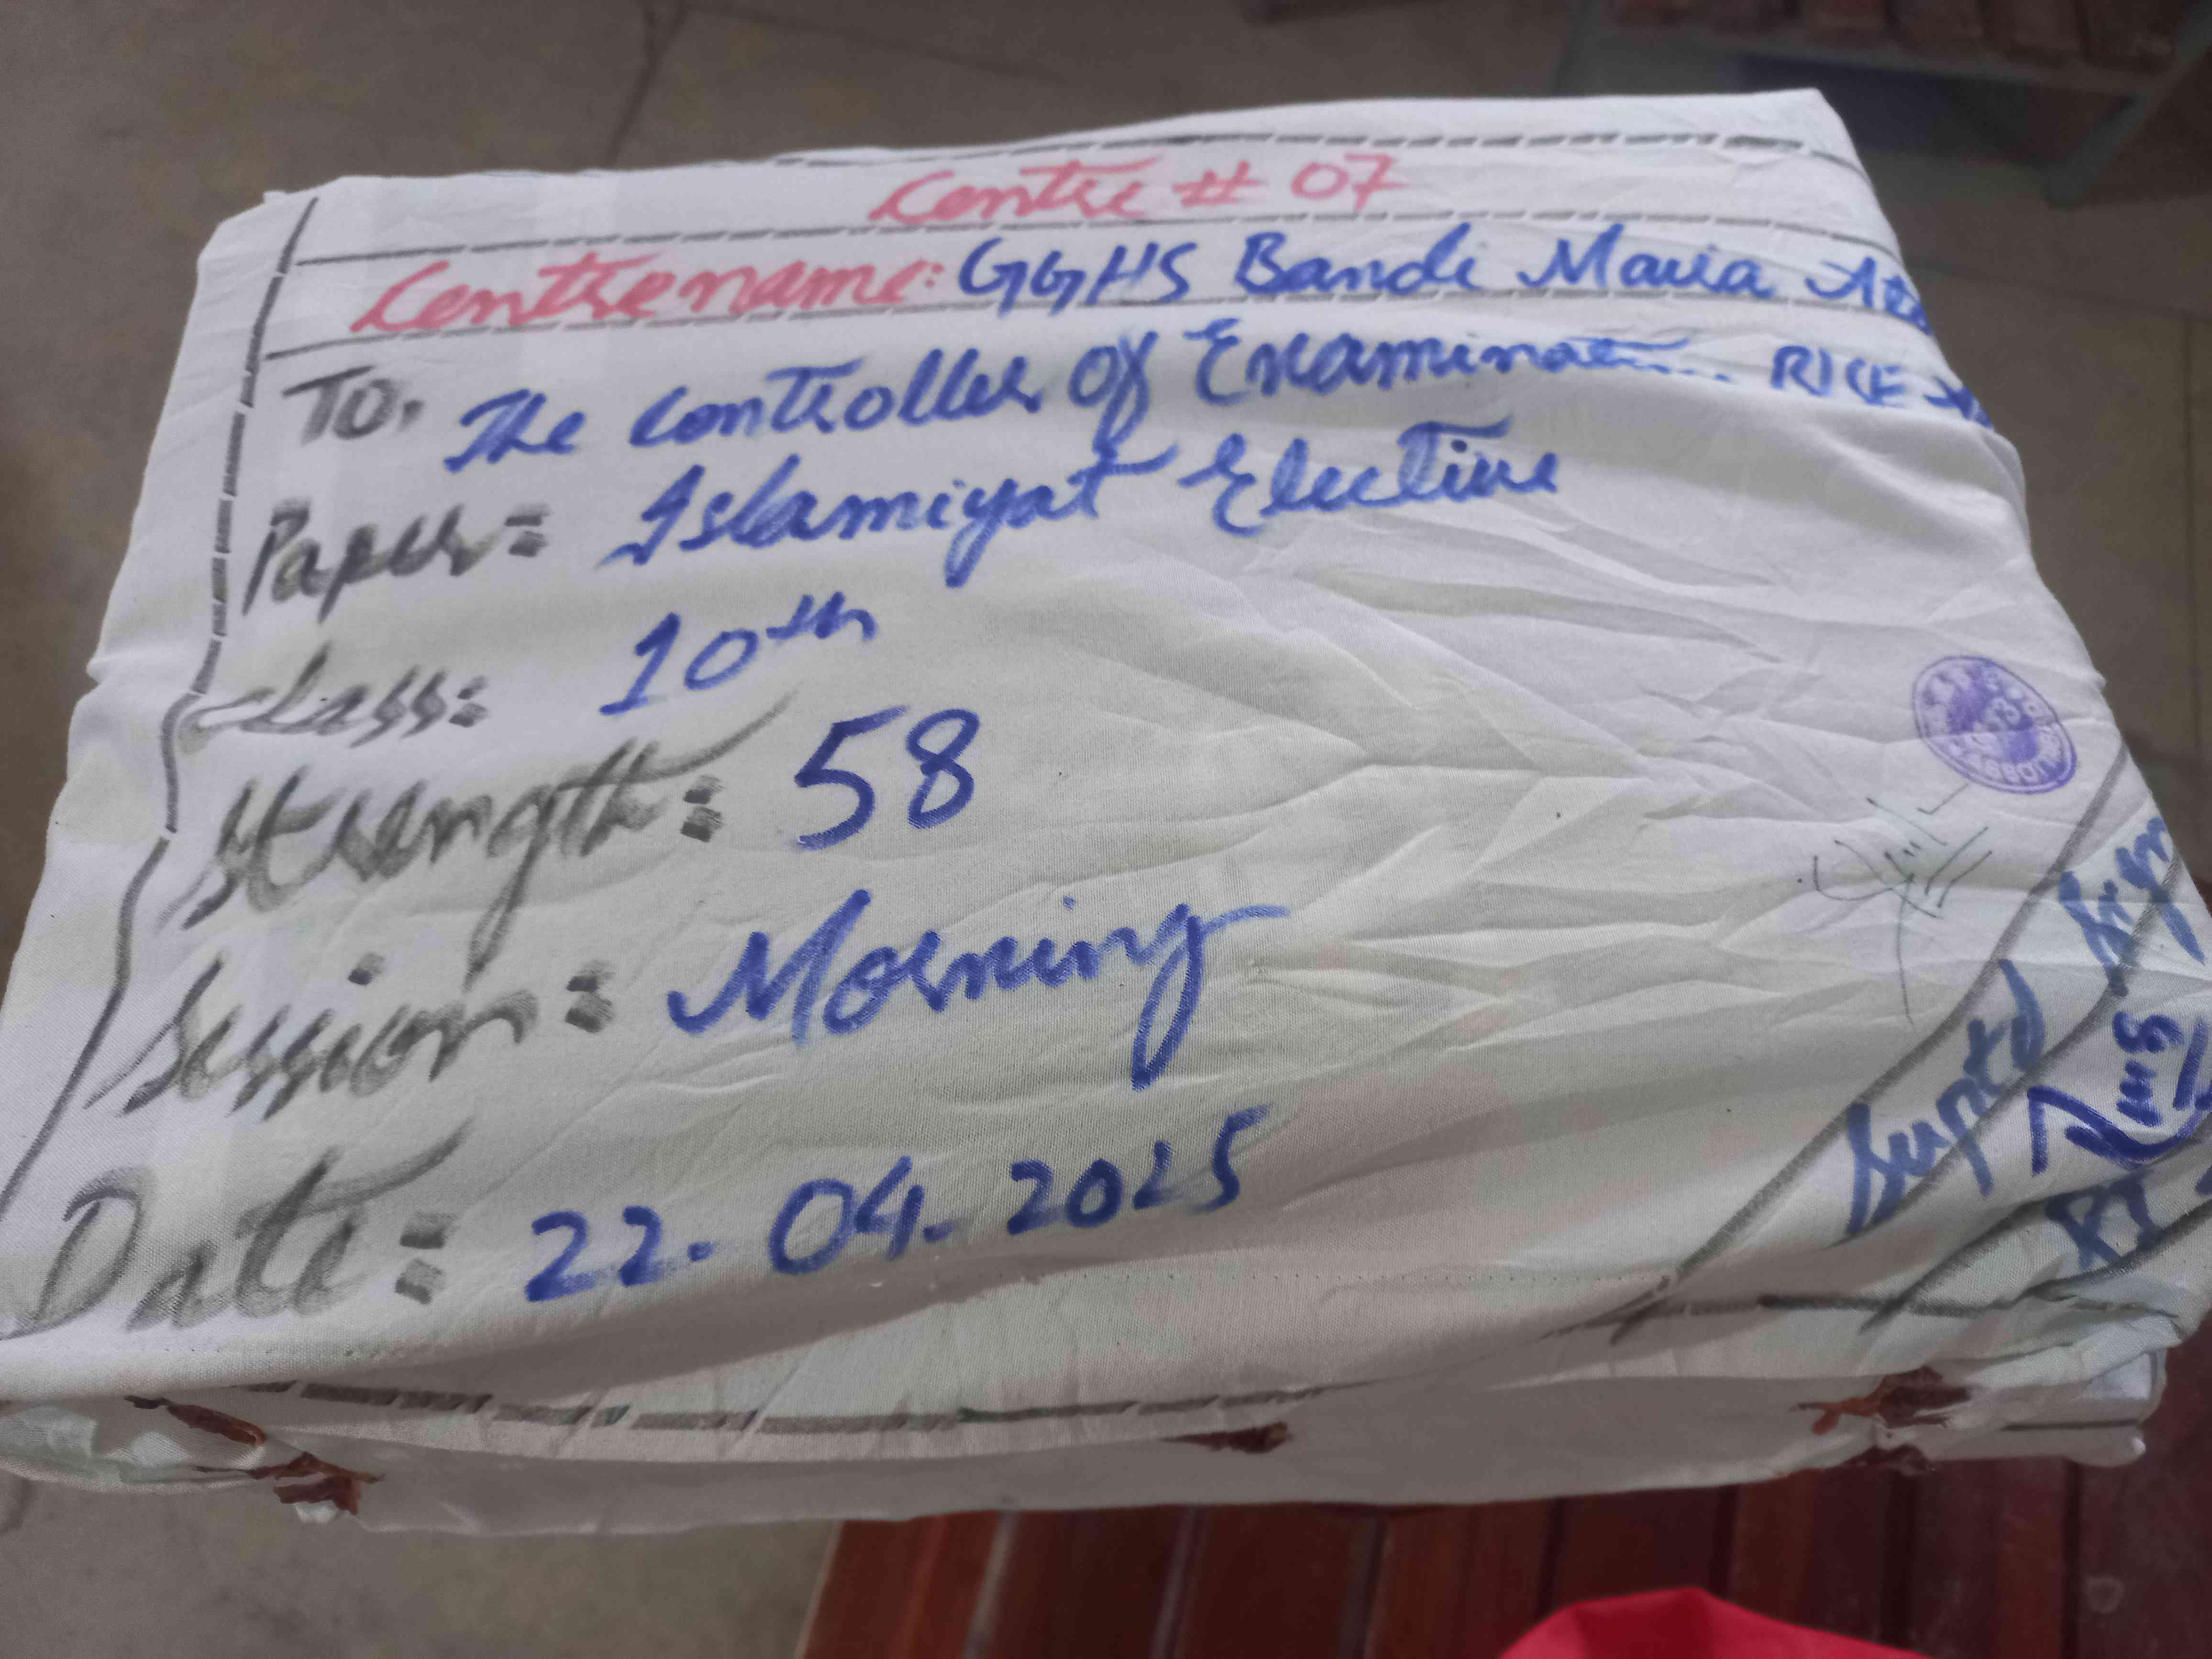 Centre # 07
Centre name: GGHS Bandi Maira
To, The Controller of Examination
Paper: Islamiyat Elective
Class: 10th
Strength: 58
Session: Morning
Date: 22-04-2025
Suptd Sign